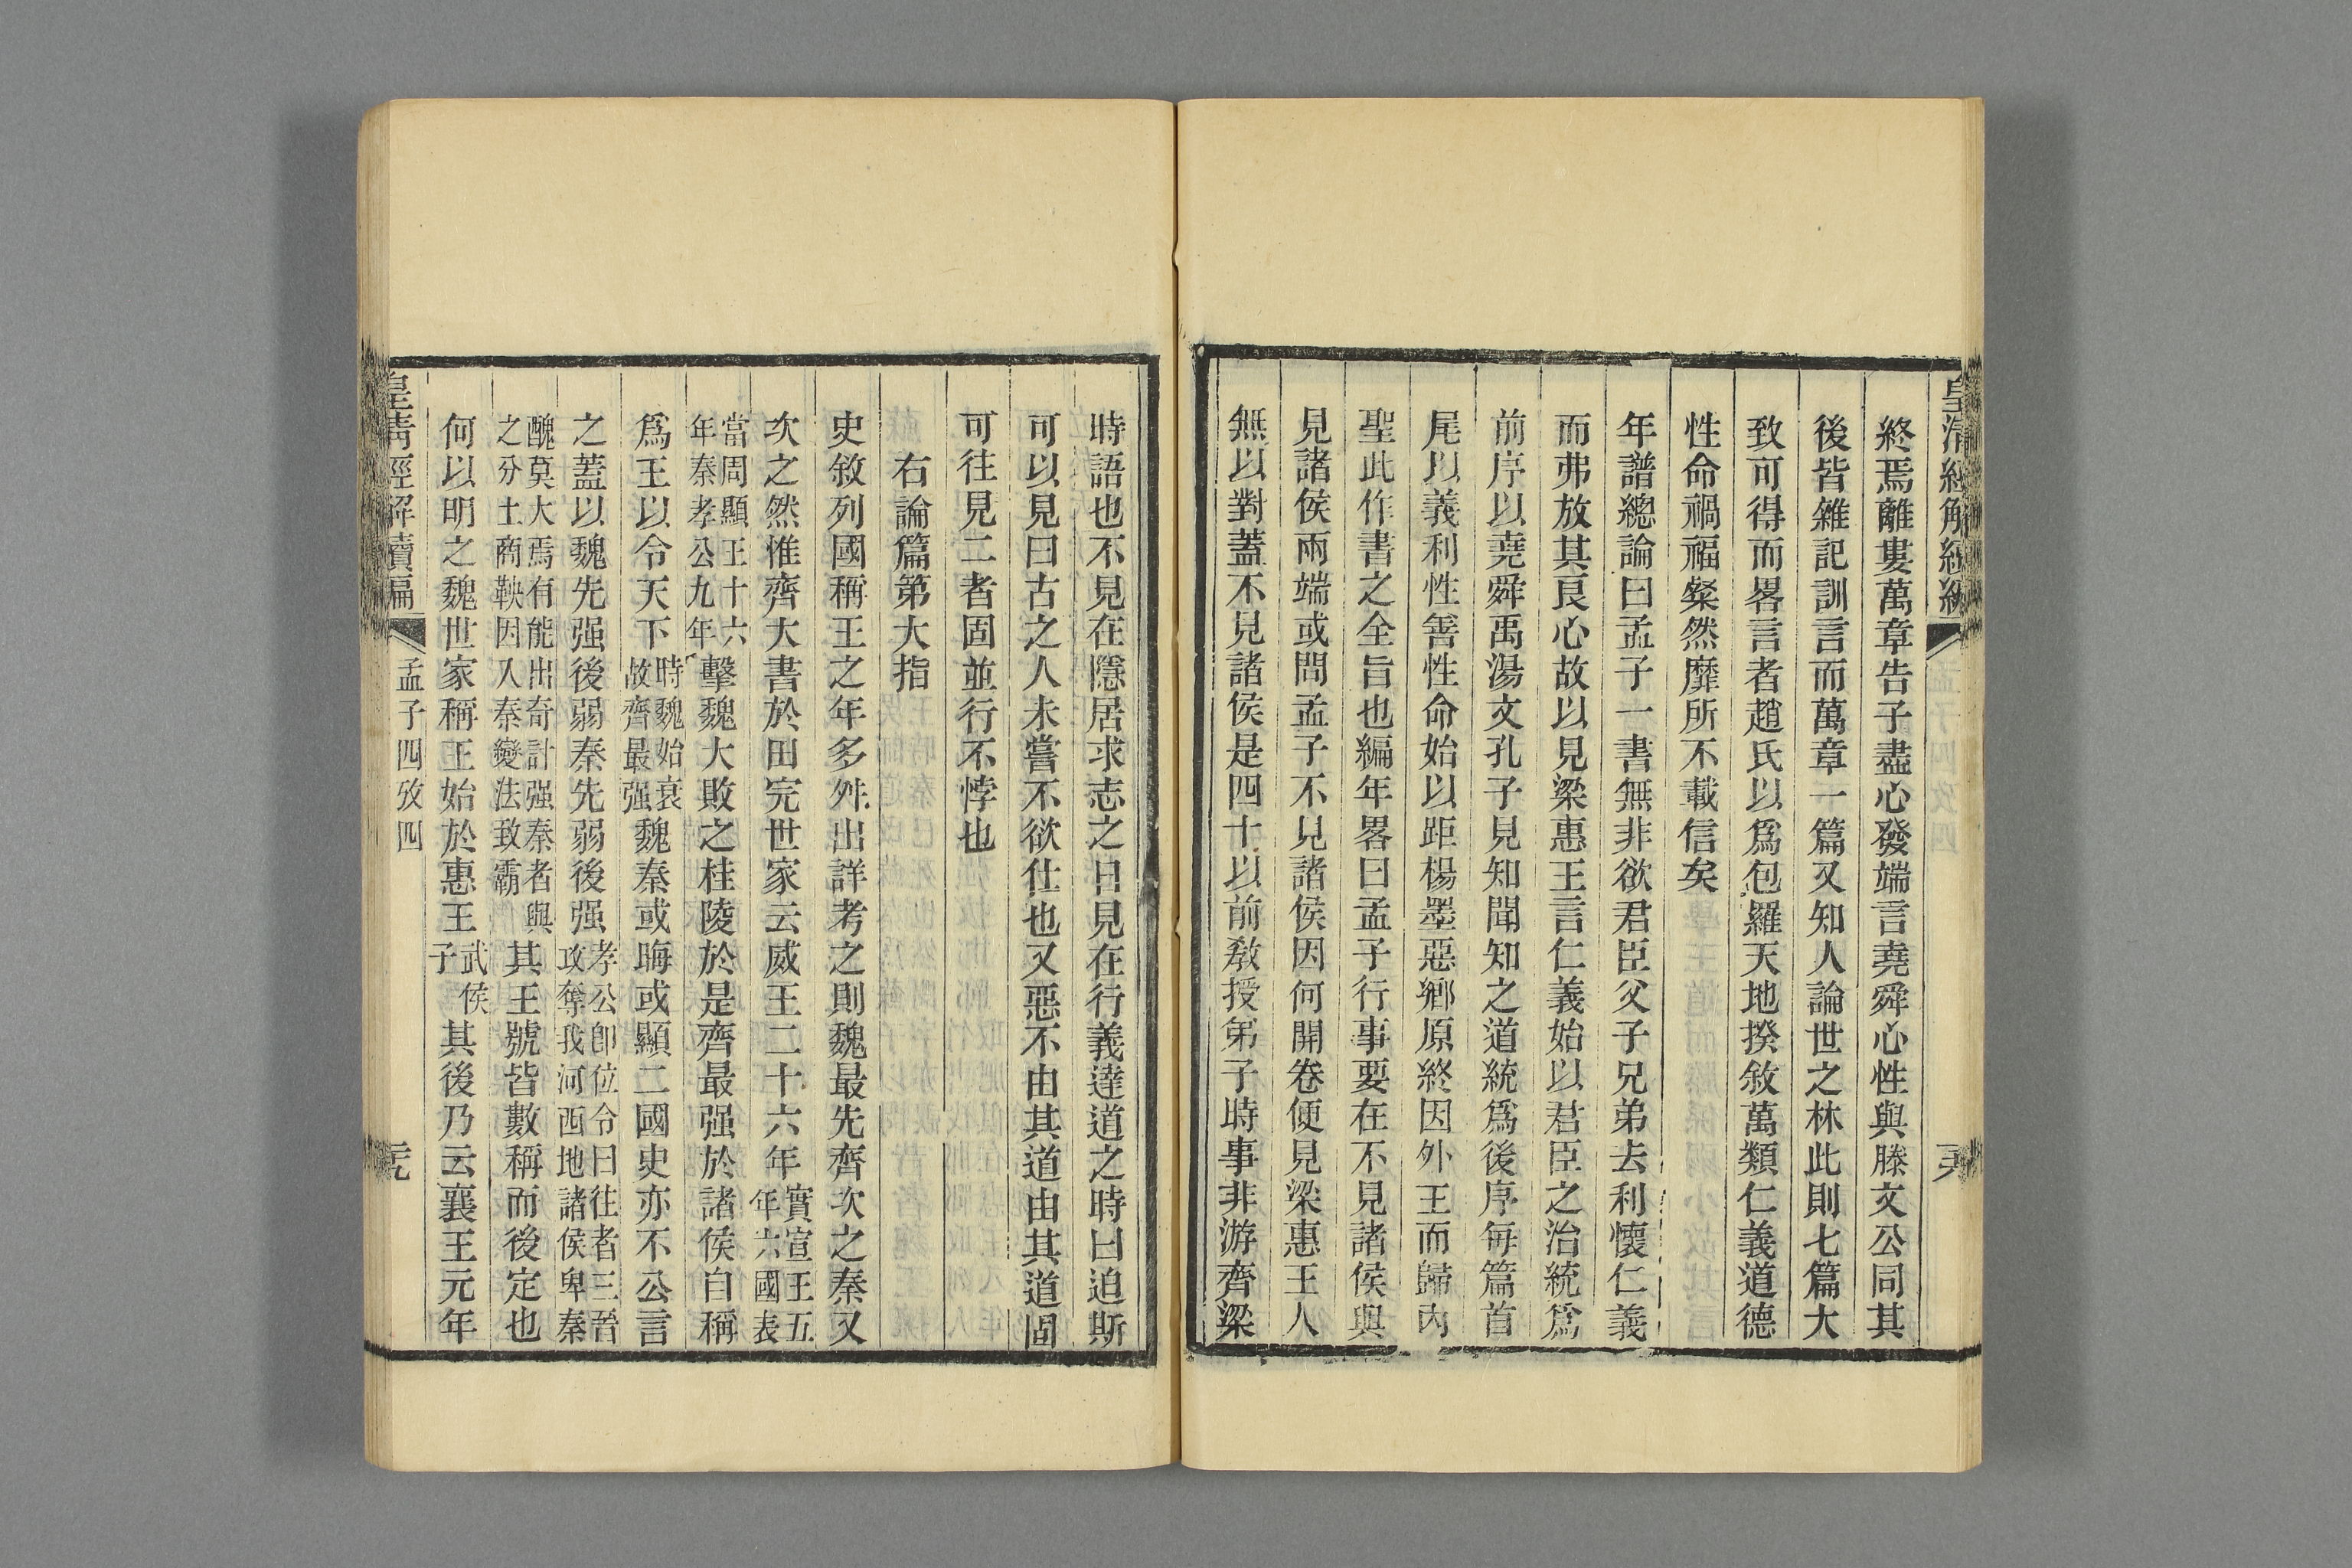 終焉離婁萬章告子盡心發端言堯舜心性與滕文公同其
後皆雜記訓言而萬章一篇又知人論世之林此則七篇大
致可得而畧言者趙氏以爲包羅天地揆敘萬類仁義道德
性命禍福粲然靡所不載信矣
年譜總論曰孟子一書無非欲君臣父子兄弟去利懷仁義
而弗放其良心故以見梁惠王言仁義始以君臣之治統爲
前序以堯舜禹湯文孔子見知聞知之道統爲後序每篇首
尾以義利性善性命始以距楊墨惡鄉原終因外王而歸內
聖此作書之全旨也編年畧曰孟子行事要在不見諸侯與
見諸侯兩端或問孟子不見諸侯因何開卷便見梁惠王人
無以對蓋不見諸侯是四十以前敎授弟子時事非游齊梁
時語也不見在隱居求志之日見在行義達道之時曰迫斯
可以見曰古之人未嘗不欲仕也又惡不由其道由其道固
可往見二者固並行不悖也
右論篇第大指
史敘列國稱王之年多舛出詳考之則魏最先齊次之秦又
次之然惟齊大書於田完世家云威王二十六年實宣王五年六國表
當周顯王十六年秦孝公九年擊魏大敗之桂陵於是齊最强於諸侯自稱
爲王以令天下時魏始衰故齊最强魏秦或晦或顯二國史亦不公言
之蓋以魏先强後弱秦先弱後强孝公卽位令曰往者三晉攻奪我河西地諸侯卑秦
醜莫大焉有能出奇計强秦者與之分土商鞅因入秦變法致霸其王號皆數稱而後定也
何以明之魏世家稱王始於惠王武侯子其後乃云襄王元年
皇淸經解續編 孟子四攷四